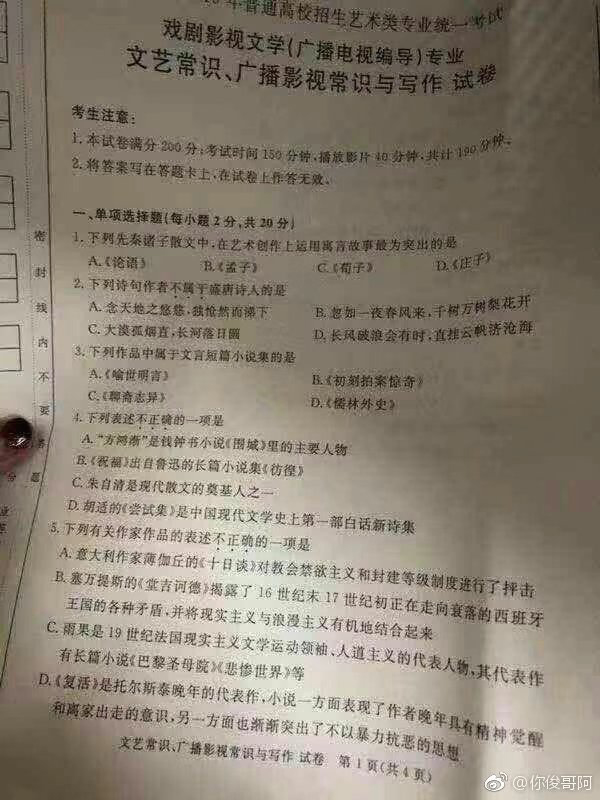 年普通高校招生艺术类专业统一考试
戏剧影视文学(广播电视编导)专业
文艺常识、广播影视常识与写作 试卷
考生注意:
1. 本试卷满分200分;考试时间150分钟,播放影片40分钟,共计190分钟。
2. 将答案写在答题卡上,在试卷上作答无效。
一、单项选择题(每小题2分,共20分)
1. 下列先秦诸子散文中,在艺术创作上运用寓言故事最为突出的是
A.《论语》 B.《孟子》 C.《荀子》 D.《庄子》
2. 下列诗句作者不属于盛唐诗人的是
A. 念天地之悠悠,独怆然而涕下 B. 忽如一夜春风来,千树万树梨花开
C. 大漠孤烟直,长河落日圆 D. 长风破浪会有时,直挂云帆济沧海
3. 下列作品中属于文言短篇小说集的是
A.《喻世明言》 B.《初刻拍案惊奇》
C.《聊斋志异》 D.《儒林外史》
4. 下列表述不正确的一项是
A. “方鸿渐”是钱钟书小说《围城》里的主要人物
B.《祝福》出自鲁迅的长篇小说集《彷徨》
C. 朱自清是现代散文的奠基人之一
D. 胡适的《尝试集》是中国现代文学史上第一部白话新诗集
5. 下列有关作家作品的表述不正确的一项是
A. 意大利作家薄伽丘的《十日谈》对教会禁欲主义和封建等级制度进行了抨击
B. 塞万提斯的《堂吉诃德》揭露了16世纪末17世纪初正在走向衰落的西班牙
王国的各种矛盾,并将现实主义与浪漫主义有机地结合起来
C. 雨果是19世纪法国现实主义文学运动领袖、人道主义的代表人物,其代表作
有长篇小说《巴黎圣母院》《悲惨世界》等
D.《复活》是托尔斯泰晚年的代表作,小说一方面表现了作者晚年具有精神觉醒
和离家出走的意识,另一方面也渐渐突出了不以暴力抗恶的思想
文艺常识、广播影视常识与写作 试卷 第1页(共4页)
密
封
线
内
不
要
答
题
分
业
@你俊哥阿